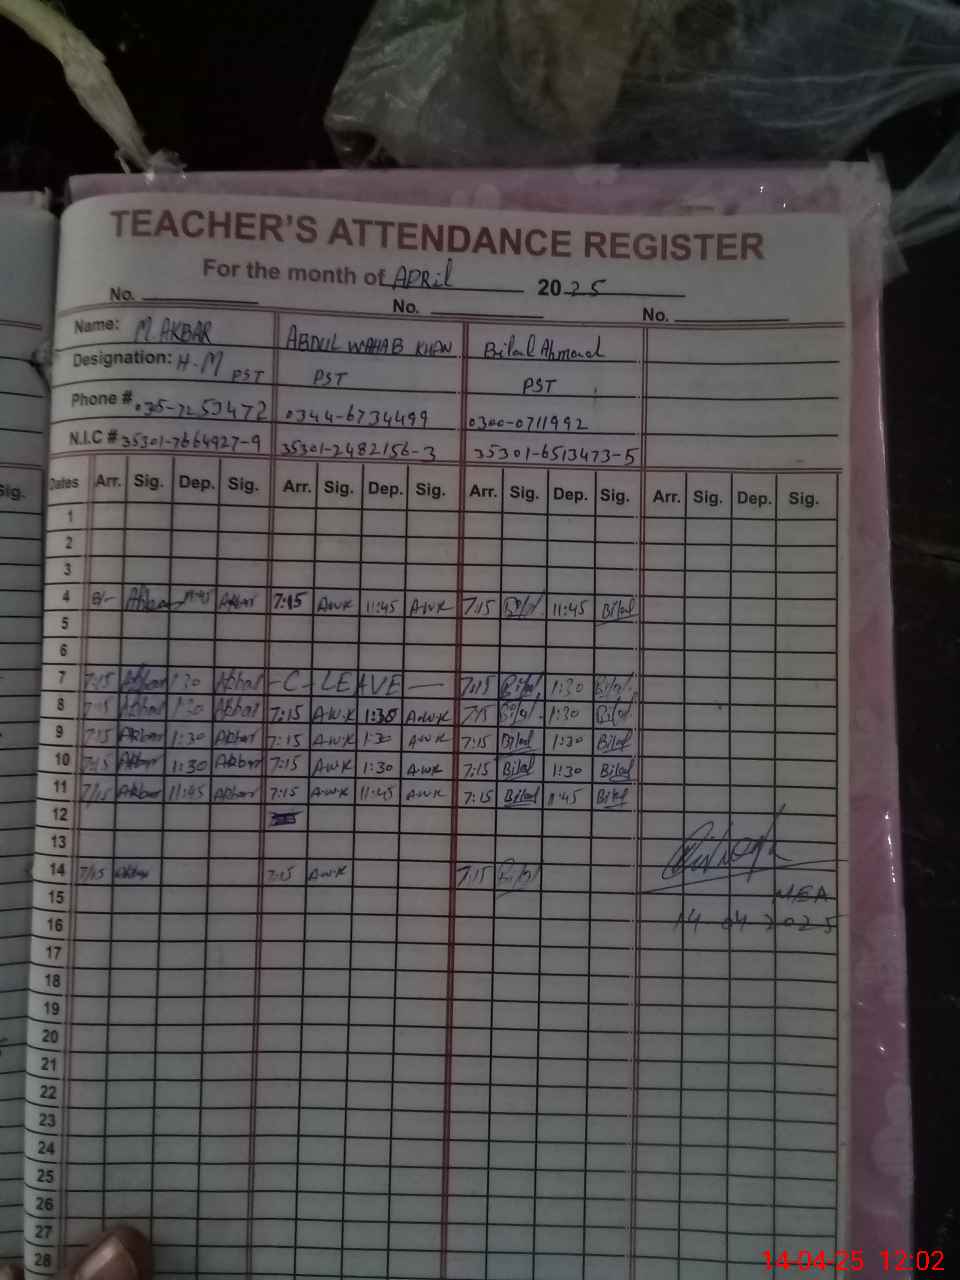 TEACHER'S ATTENDANCE REGISTER
For the month of APRil 2025
No. No. No.
Name: M. AKBAR ABDUL WAHAB KHAN Bilal Ahmad
Designation: H.M PST PST PST
Phone # 035-7253472 0344-6734499 0300-0711992
N.I.C # 35301-7664927-9 35301-2482156-3 35301-6513473-5
Sig. Dates Arr. Sig. Dep. Sig. Arr. Sig. Dep. Sig. Arr. Sig. Dep. Sig. Arr. Sig. Dep. Sig.
1
2
3
4 Akbar Akbar 7:15 AWK 11:45 AWK 7:15 Bilal 11:45 Bilal
5
6
7 7:15 Akbar 1:30 Akbar - C - LEAVE - 7:15 Bilal 1:30 Bilal
8 7:15 Akbar 1:30 Akbar 7:15 AWK 1:30 AWK 7:15 Bilal 1:30 Bilal
9 7:15 Akbar 1:30 Akbar 7:15 AWK 1:30 AWK 7:15 Bilal 1:30 Bilal
10 7:15 Akbar 1:30 Akbar 7:15 AWK 1:30 AWK 7:15 Bilal 1:30 Bilal
11 7/15 Akbar 11:45 Akbar 7:15 AWK 11:45 AWK 7:15 Bilal 11:45 Bilal
12
13
14 7/15 Akbar 7:15 AWK 7:15 Bilal
15 MEA
16 14 04 2025
17
18
19
20
21
22
23
24
25
26
27
28
14-04-25 12:02